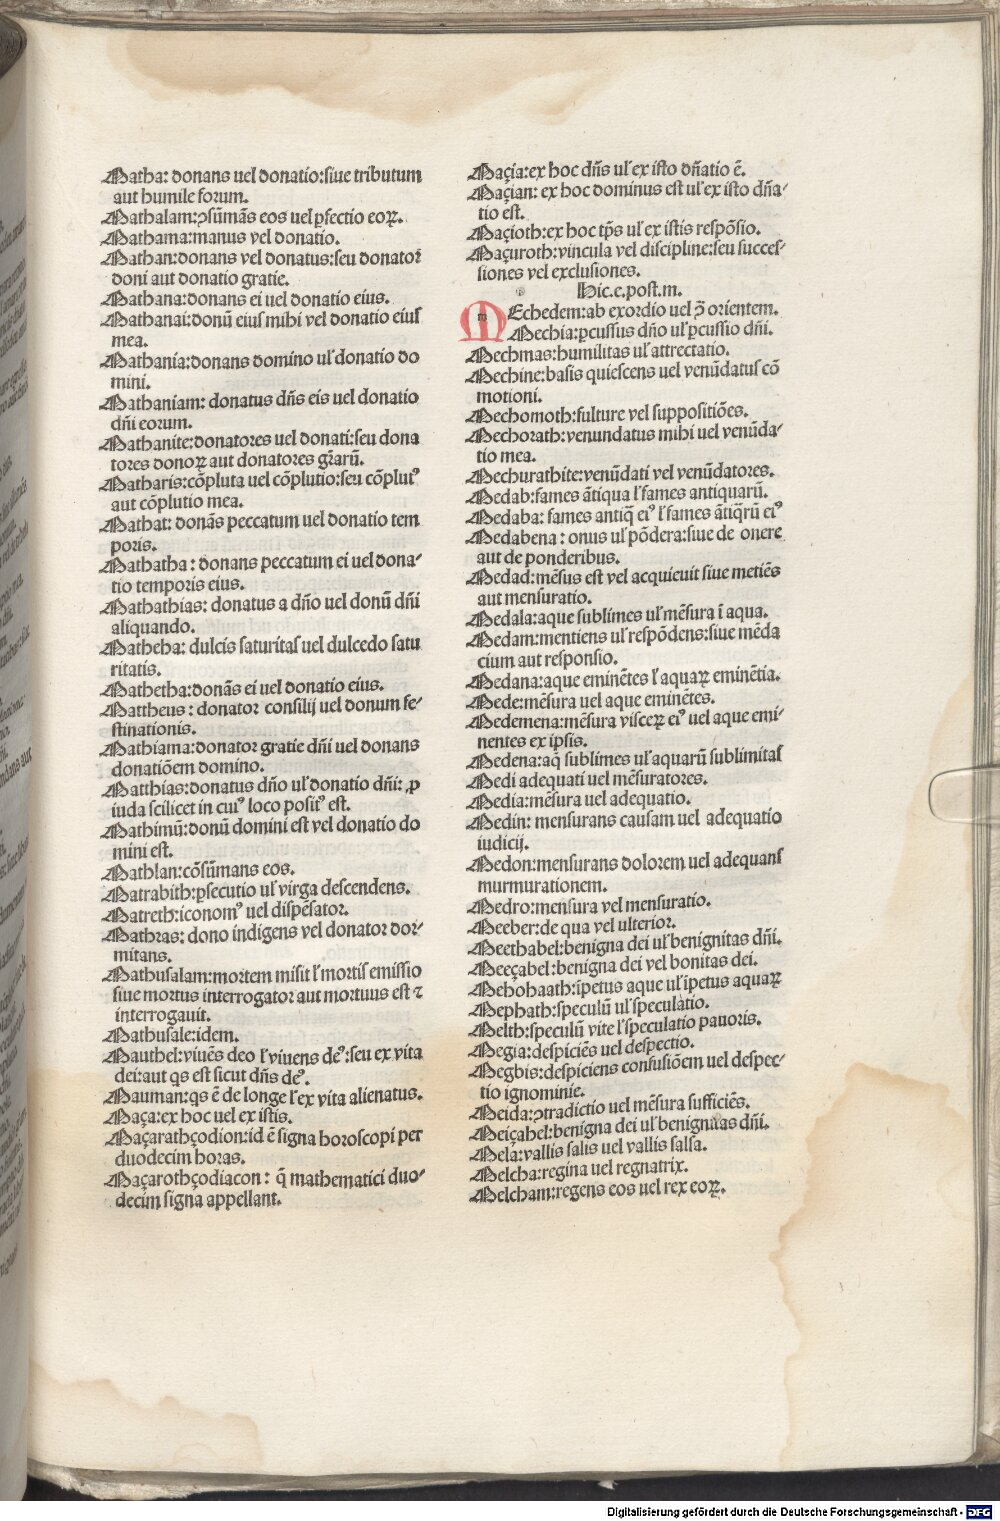 Matha: donans uel donatio:siue tributum
aut humile forum.
Mathalam:ꝯsũmãs eos uel ꝑfectio eoꝝ.
Mathama:manus vel donatio.
Mathan:donans vel donatus:seu donator
doni aut donatio gratie.
Mathana:donans ei uel donatio eius.
Mathanai:donũ eius mihi vel donatio eius
mea.
Mathania:donans domino ul' donatio do
mini.
Mathaniam: donatus dñs eis uel donatio
dñi eorum.
Mathanite:donatores uel donati:seu dona
tores donoꝝ aut donatores gr̃arũ.
Matharis:cõpluta uel cõplutio:seu cõplutꝰ
aut cõplutio mea.
Mathat: donãs peccatum uel donatio tem
poris.
Mathatha: donans peccatum ei uel dona-
tio temporis eius.
Mathathias: donatus a dño uel donũ dñi
aliquando.
Matheba: dulcis saturitas uel dulcedo satu
ritatis.
Mathetha:donãs ei uel donatio eius.
Mattheus: donator consilij uel donum fe-
stinationis.
Mathiama:donator gratie dñi uel donans
donatiõem domino.
Matthias:donatus dño ul' donatio dñi: ꝓ
iuda scilicet in cuiꝰ loco positꝰ est.
Mathimũ:donũ domini est vel donatio do
mini est.
Mathlan:cõsũmans eos.
Matrabith:ꝑsecutio ul' virga descendens.
Matreth:iconomꝰ uel dispẽsator.
Mathras: dono indigens vel donator dor-
mitans.
Mathusalam:mortem misit l' mortis emissio
siue mortus interrogator aut mortuus est ⁊
interrogauit.
Mathusale:idem.
Mauthel:viuẽs deo l' viuens deꝰ:seu ex vita
dei:aut qs est sicut dñs deꝰ.
Mauman:qs ẽ de longe l' ex vita alienatus.
Maça:ex hoc uel ex istis.
Maçarathçodion:id ẽ signa horoscopi per
duodecim horas.
Maçarothçodiacon: q̃ mathematici duo-
decim signa appellant.
Maçia:ex hoc dñs ul' ex isto dñatio ẽ.
Maçian: ex hoc dominus est ul' ex isto dña-
tio est.
Maçioth:ex hoc tp̃s ul' ex istis respõsio.
Maçuroth:vincula vel discipline:seu succes-
siones vel exclusiones.
Hic.e.post.m.
MEchedem:ab exordio uel p̃ orientem.
Mechia:ꝑcussus dño ul' ꝑcussio dñi.
Mechmas:humilitas ul' attrectatio.
Mechine:basis quiescens uel venũdatus cõ
motioni.
Mechomoth:fulture vel suppositiões.
Mechorath:venundatus mihi uel venũda-
tio mea.
Mechurathite:venũdati vel venũdatores.
Medab:fames ãtiqua l' fames antiquarũ.
Medaba: fames antiq̃ eiꝰ l' fames ãtiq̃rũ eiꝰ
Medabena: onus ul' põdera:siue de onere
aut de ponderibus.
Medad:mẽsus est vel acquieuit siue metiẽs
aut mensuratio.
Medala:aque sublimes ul' mẽsura ĩ aqua.
Medam:mentiens ul' respõdens:siue mẽda
cium aut responsio.
Medana:aque eminẽtes l' aquaꝝ eminẽtia.
Mede:mẽsura vel aque eminẽtes.
Medemena:mẽsura visceꝝ eiꝰ uel aque emi-
nentes ex ipsis.
Medena:aq̃ sublimes ul' aquarũ sublimitas
Medi adequati uel mẽsuratores.
Media:mẽsura uel adequatio.
Medin: mensurans causam uel adequatio
iudicij.
Medon:mensurans dolorem uel adequans
murmurationem.
Medro:mensura vel mensuratio.
Meeber:de qua vel ulterior.
Meethabel:benigna dei ul' benignitas dñi.
Meeçabel:benigna dei vel bonitas dei.
Mehohaath:ĩpetus aque ul' ĩpetus aquaꝝ
Mephath:speculũ ul' speculatio.
Melth:speculũ vite l' speculatio pauoris.
Megia:despiciẽs uel despectio.
Megbis:despiciens confusiõem uel despec-
tio ignominie.
Meida:ꝯtradictio uel mẽsura sufficiẽs.
Meiçabel:benigna dei ul' benignitas dñi.
Mela:vallis salis uel vallis salsa.
Melcha:regina uel regnatrix.
Melcham:regens eos uel rex eoꝝ.
Digitalisierung gefördert durch die Deutsche Forschungsgemeinschaft - DFG